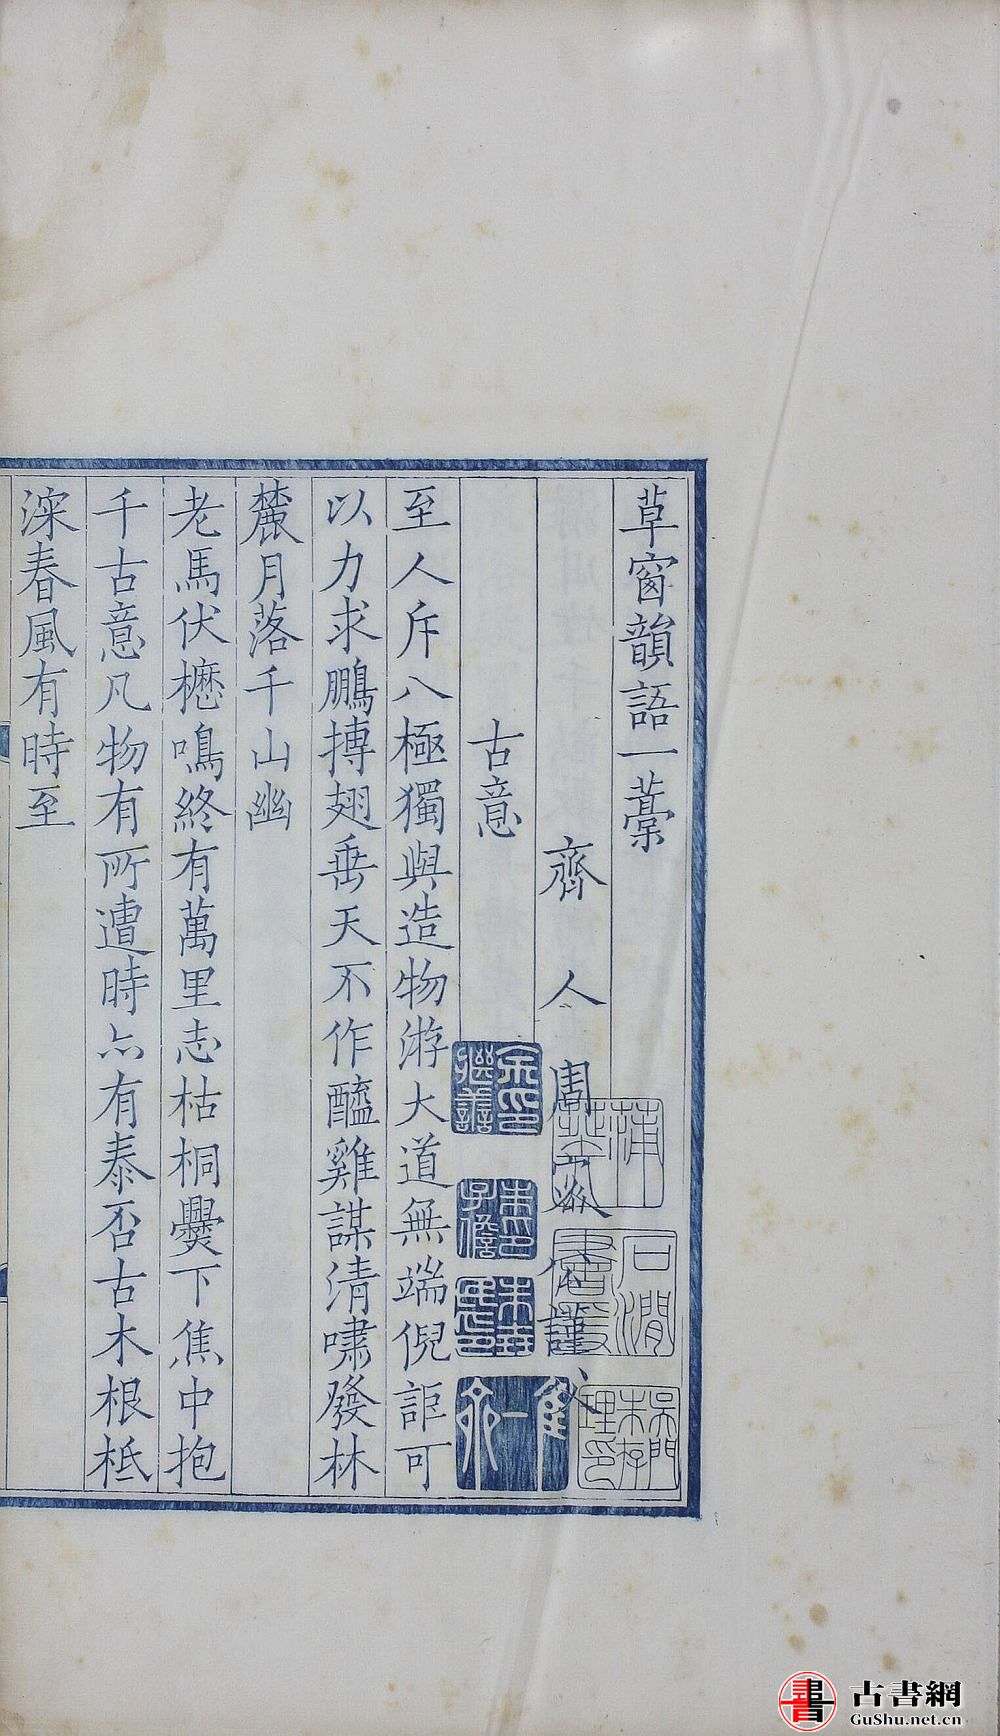 草窗韻語一藁
齊人周密公謹父
古意
至人斥八極獨與造物游大道無端倪詎可
以力求鵬摶翅垂天不作醯雞謀清嘯發林
麓月落千山幽
老馬伏櫪鳴終有萬里志枯桐爨下焦中抱
千古意凡物有所遭時亦有泰否古木根柢
深春風有時至
余印
繼善
朱印
子儋
石澗
書隱
吳門
朱存
理印
古書網
GuShu.net.cn